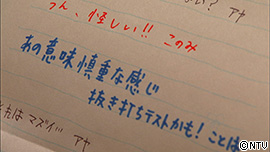 ない? アヤ
うん、怪しい!! このみ
あの意味慎重な感じ
抜き打ちテストかも! ことは
先はマズイ!! アヤ
©NTV